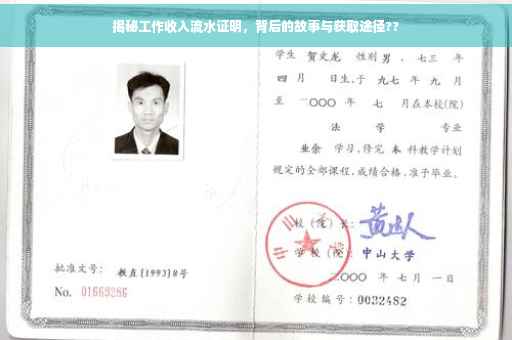 揭秘工作收入流水证明，背后的故事与获取途径??
学生 贺文龙 性别 男 、七三 年
四 月 日生，于 九七 年 九 月
至 二〇〇〇 年 七 月在本校(院)
法 学 专业
业余 学习，修完 本 科教学计划
规定的全部课程，成绩合格，准予毕业。
校 (院) 长：
学 校 (院)： 中山大学
二〇〇〇 年 七 月 一日
批准文号： 教直[1993]8号
No. 01669286
学校编号：0032482